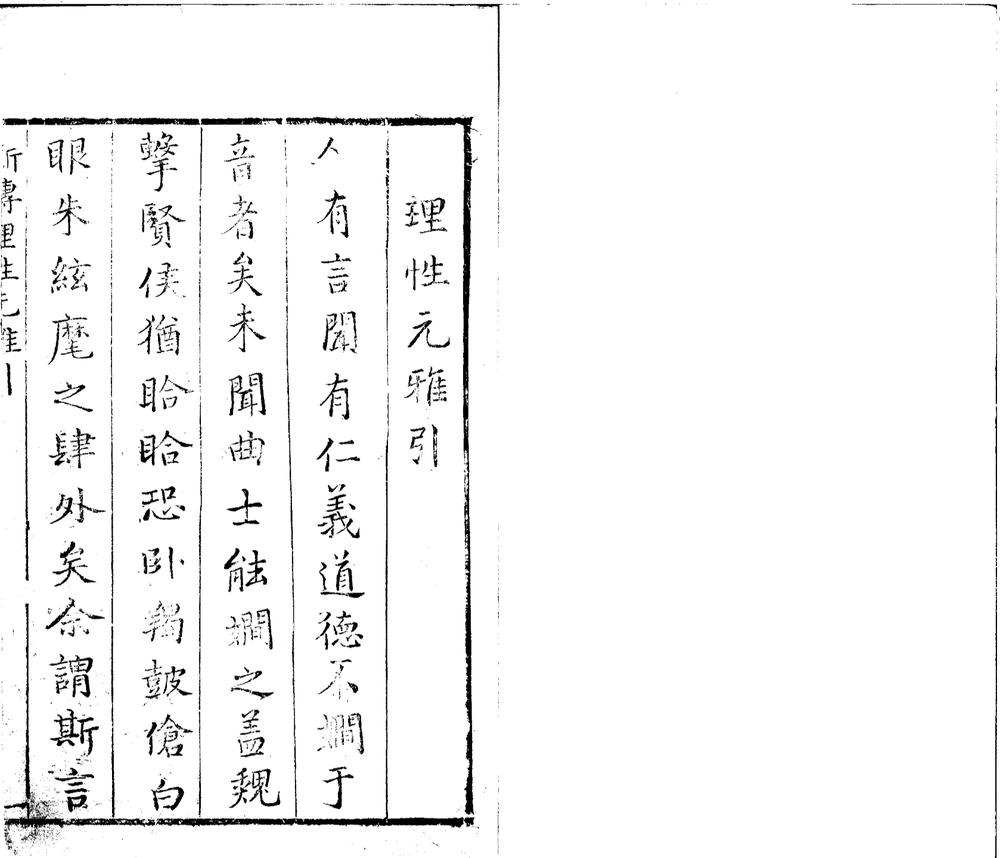 理性元雅引
人有言聞有仁義道德不嫻于
音者矣未聞曲士能嫻之盖魏
擊賢侯猶眙眙恐卧羯鼓傖白
眼朱絃麾之肆外矣余謂斯言
新傳理性元雅引
一